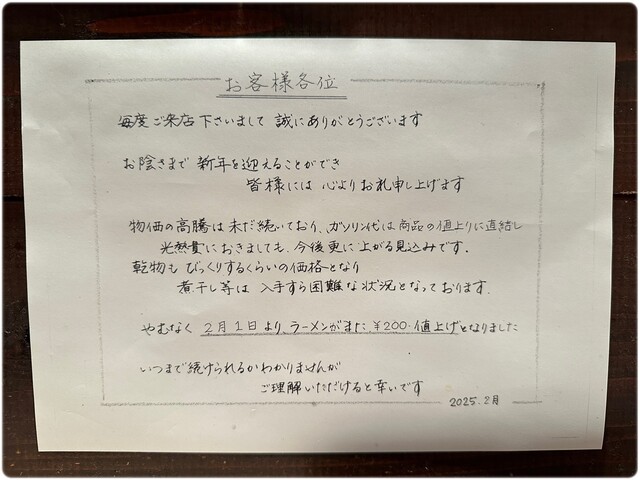 お客様各位
毎度ご来店下さいまして 誠にありがとうございます
お陰さまで 新年を迎えることができ
皆様には 心よりお礼申し上げます
物価の高騰は未だ続いており、ガソリン代は商品の値上りに直結し
光熱費におきましても、今後更に上がる見込みです。
乾物も びっくりするくらいの価格となり
煮干し等は 入手すら困難な状況となっております。
やむなく 2月1日より、ラーメンがまた ¥200.値上げとなりました
いつまで続けられるかわかりませんが
ご理解いただけると幸いです
2025.2月